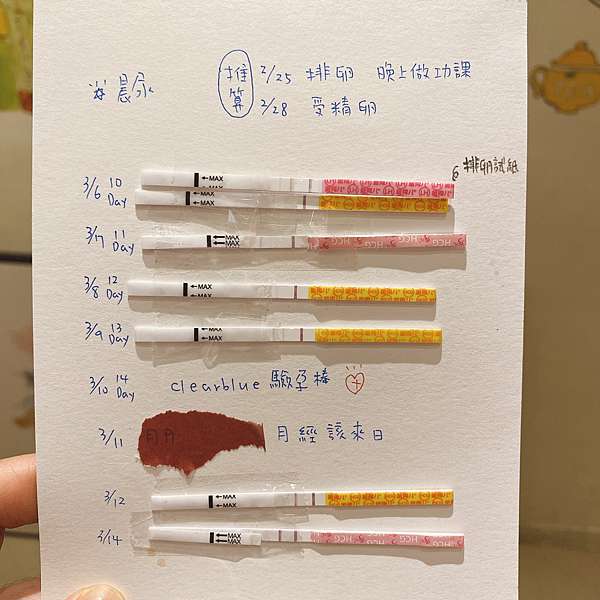 晨尿
推算 2/25 排卵 晚上做功課
2/28 受精卵
排卵試紙
3/6 10 Day
←MAX
←MAX
3/7 11 Day
MAX
MAX
HCG HCG
3/8 12 Day
←MAX
3/9 13 Day
←MAX
3/10 14 Day clearblue 驗孕棒
3/11 月經該來日
3/12
←MAX
3/14
MAX
MAX
HCG HCG